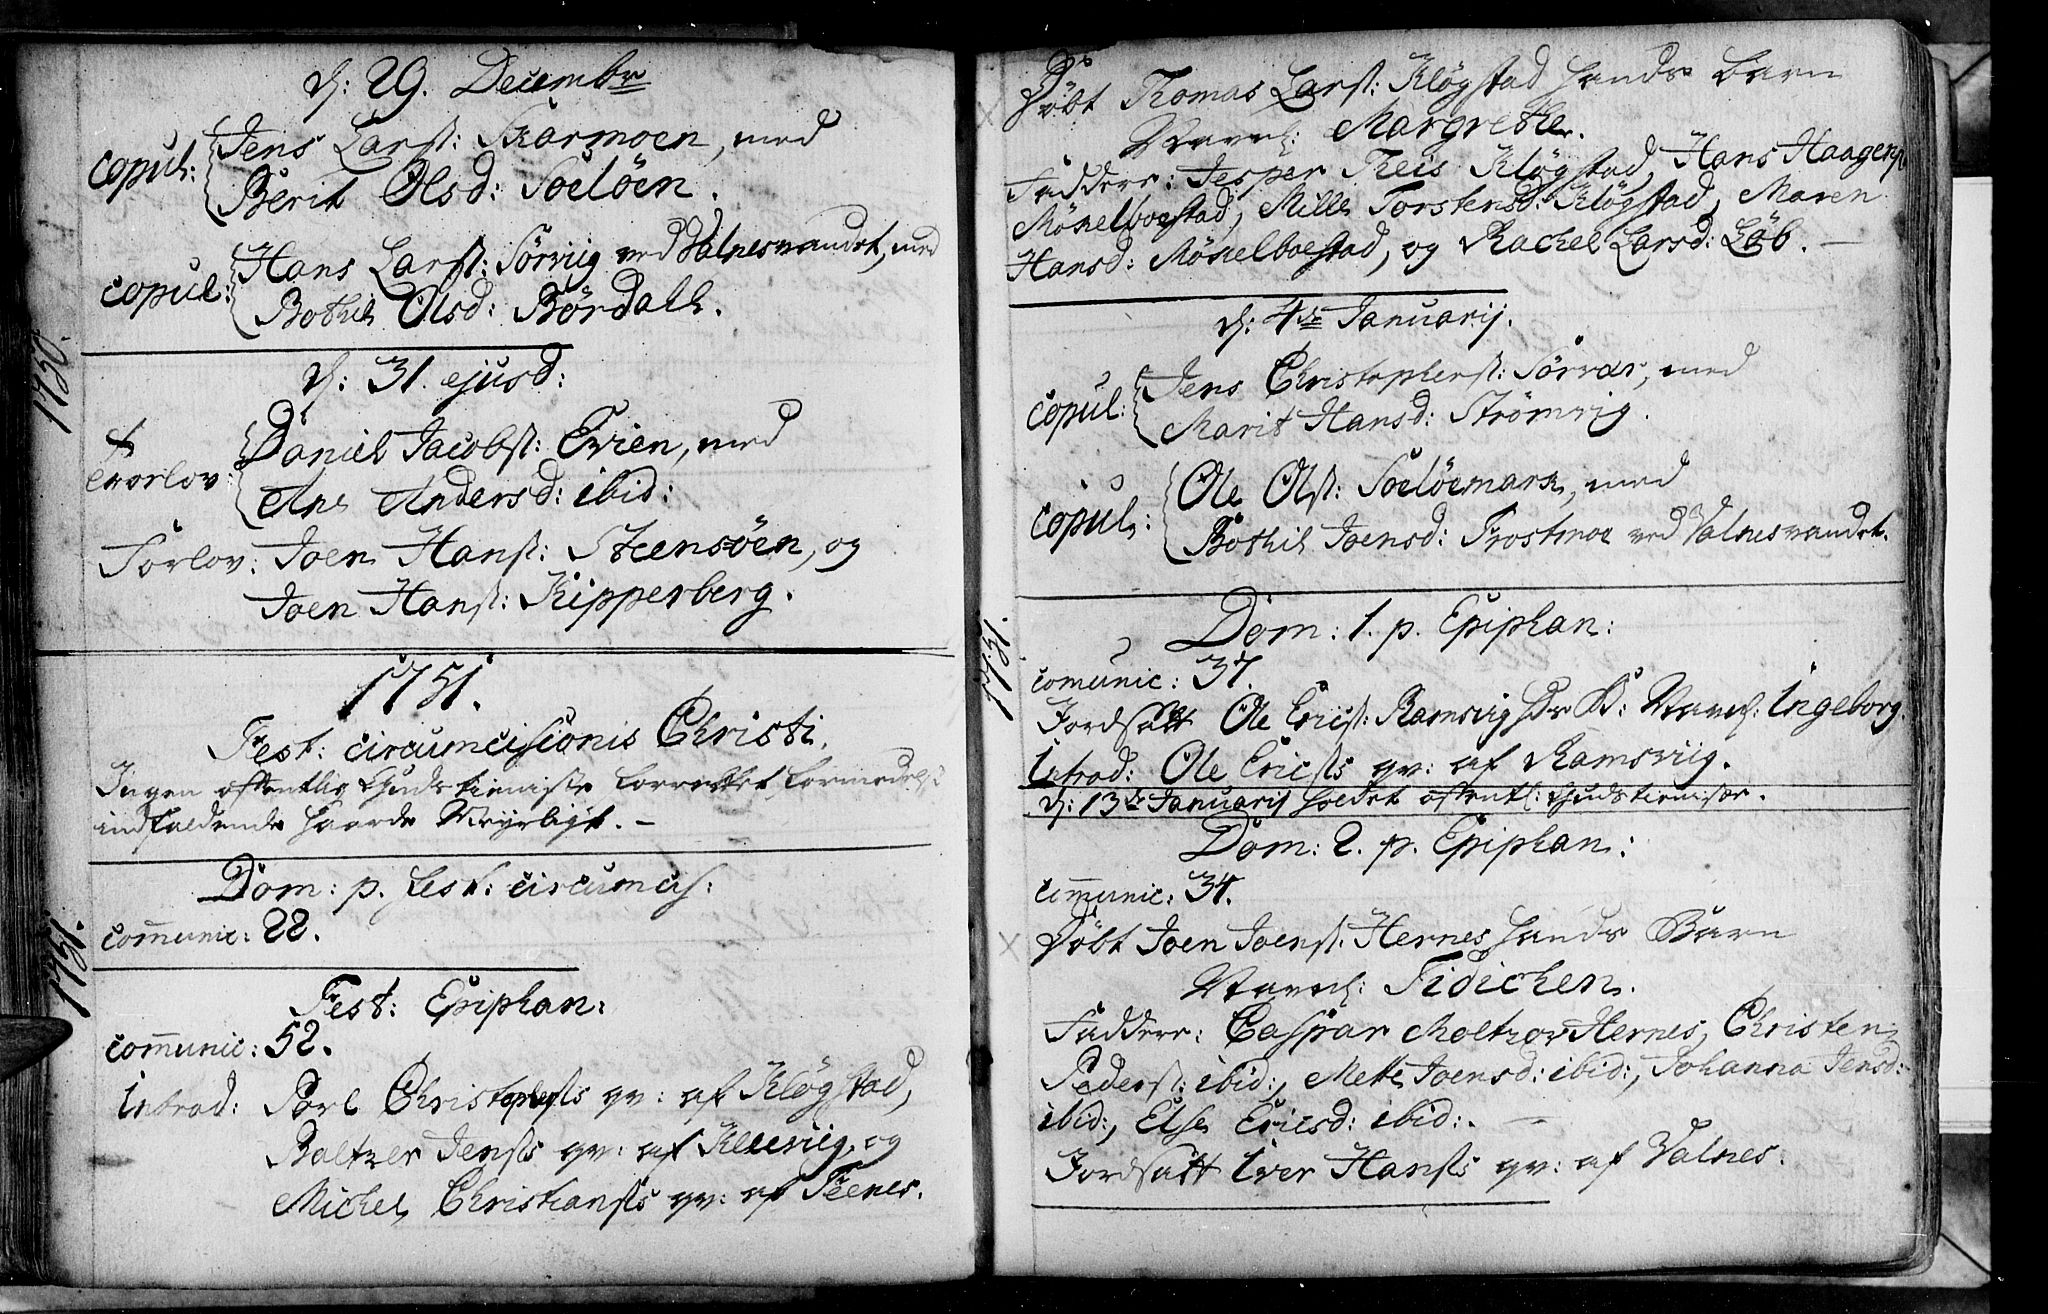 d: 29. Decembr
copul: Jens Larsł: Skarmoen, med
Berit Olsd: Soelöen.
copul: Hans Larsł: Sörviig ved Valnesvandet, med
Bothil Olsd: Bördall.
1750.
d: 31. ejusd:
Trorlov: Daniel Jacobsł: Evien, med
Ane Andersd: ibid:
Forlov: Joen Hansł: Steensöen, og
Joen Hansł: Kipperberg.
1751.
Fest: circumcisionis Christi.
Ingen offentlig Guds tieniste forrettet formedelst
indfaldende haarde Veyrligt. –
Dom: p. fest: circumcis:
communic: 22.
1751.
Fest: Epiphan:
communic: 52.
Introd: Parl Christophersłs qv: af Klögstad,
Baltzer Jensłs qv: af Kleeviig, og
Michel Christiansłs qv: af Feenes.
Döbt Tomas Larsł: Klögstad hands barn
Navnl: Margrethe.
Faddere: Jesper Reis Klögstad, Hans Haagensł:
Mökelboestad, Mille Torstensd: Klögstad, Maren
Hansd: Mökelboestad, og Rachel Larsd: Löb. –
d: 4de Januarij.
copul: Jens Christophersł: Sörvær, med
Marit Hansd: Strömvig.
copul: Ole Olsł: Soelöemark, med
Bothil Joensd: Frostmoe ved Valnesvandet.
1751.
Dom: 1. p. Epiphan:
comunic: 37.
Jordsatt Ole Ericsł: Ramsvig hs B: Navnl: Ingeborg.
Introd: Ole Ericsłs qv: af Ramsviig.
d: 13de Januarij holdet offentl: Gudstienisse.
Dom: 2. p. Epiphan:
communic: 34.
Döbt Joen Joensł: Hernes hands Barn
Navnl: Fidichen.
Faddere: Caspar Moltzov Hernes, Christen
Pedersł: ibid:, Mette Joensd: ibid:, Johanna Jensd:
ibid:, Else Ericsd: ibid:. –
Jordsatt Iver Hansłs qv: af Valnes.